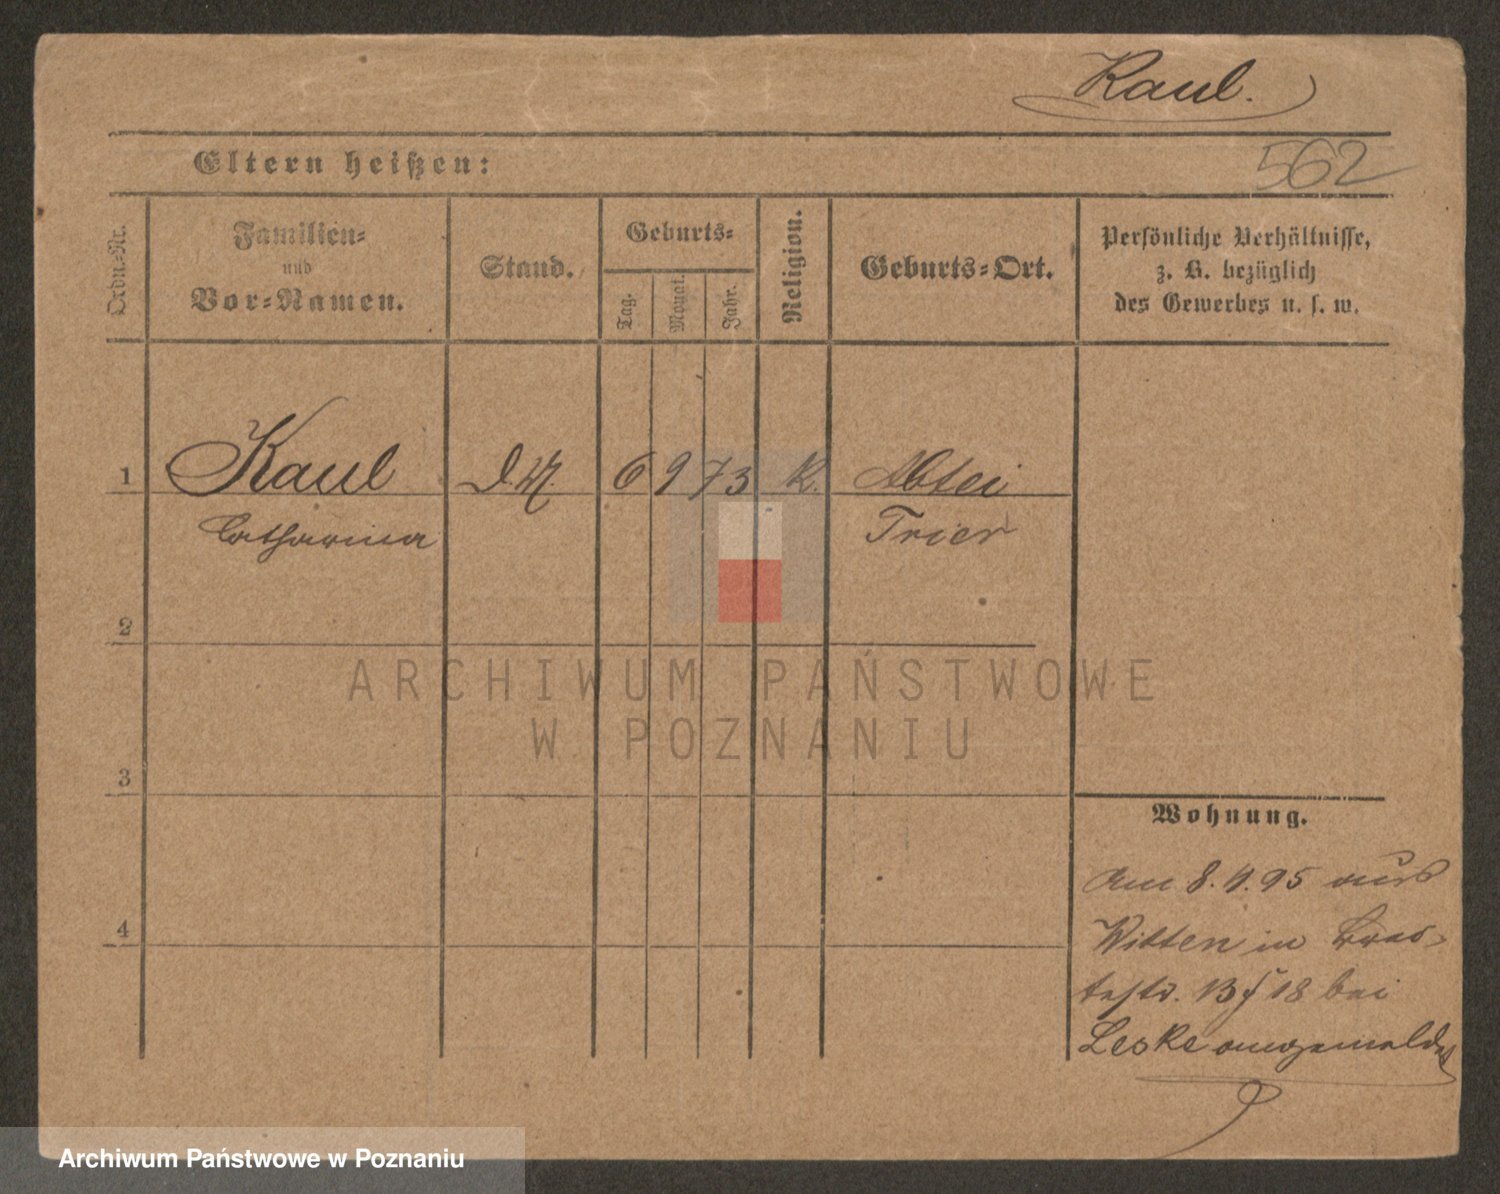 Kaul.
562
Eltern heißen:
Ordn.-Nr.
Familien-
und
Vor-Namen.
Stand.
Geburts-
Tag.
Monat.
Jahr.
Religion.
Geburts-Ort.
Persönliche Verhältnisse,
z. B. bezüglich
des Gewerbes u. s. w.
1 Kaul 6 9 73 K. Abtei
Catharina Trier
2
3
4
Wohnung.
Am 8.4.95 aus
Witten in
13 18 bei
Leske angemeldet
ARCHIWUM PAŃSTWOWE
W POZNANIU
Archiwum Państwowe w Poznaniu